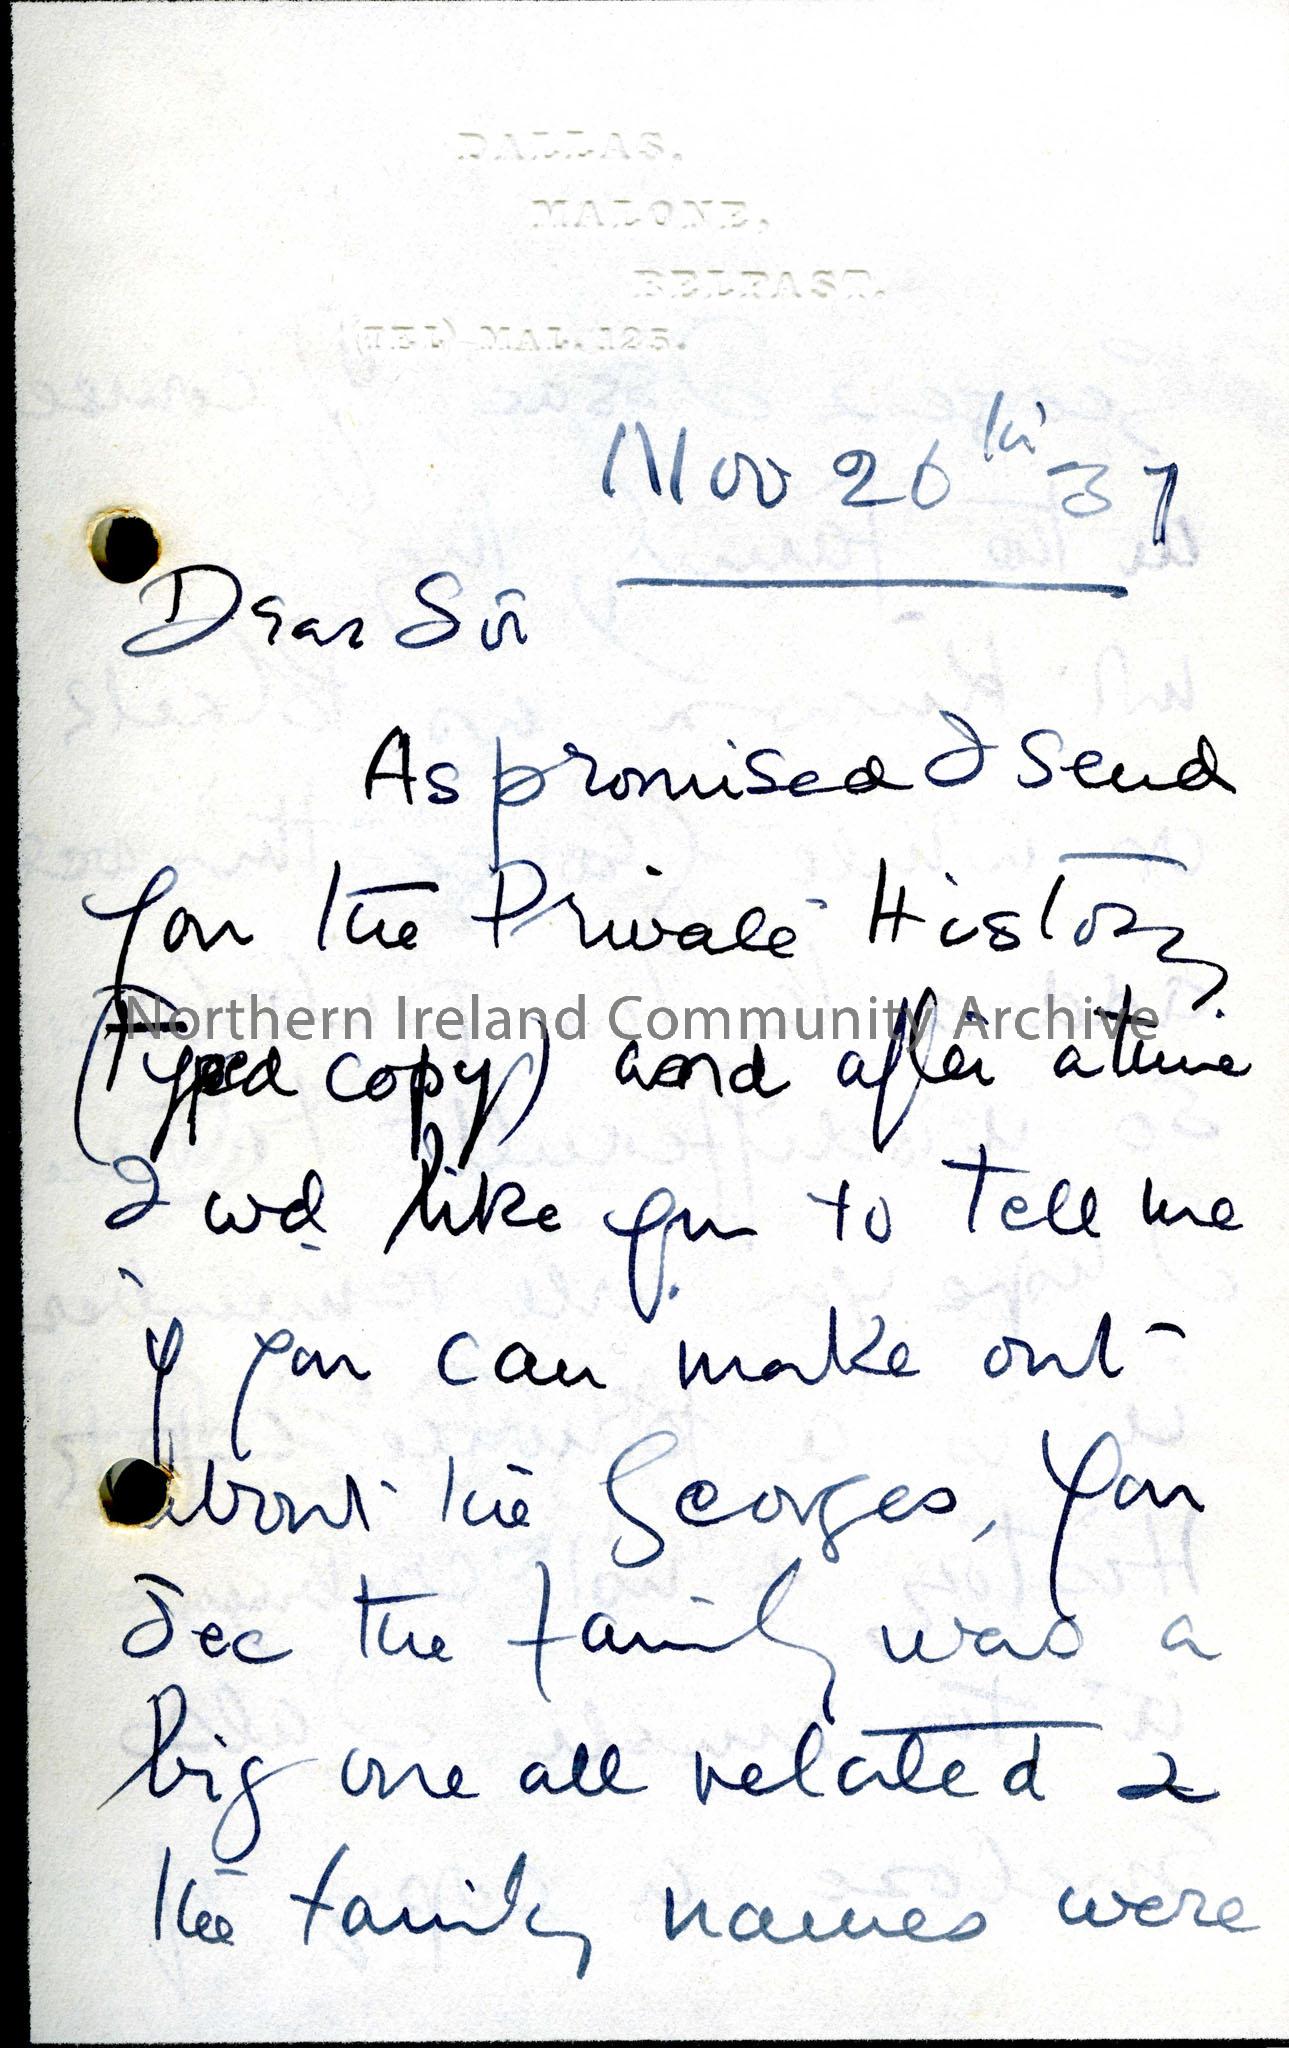 DALLAS,
MALONE,
BELFAST.
(TEL) MAL. 125.
Nov 26th 37
Dear Sir
As promised I send
you the Private History
Northern Ireland Community Archive
(Typed copy) and after a time
I wd like you to tell me
if you can make out
about the Georges, You
see the family was a
big one all related &
the family names were